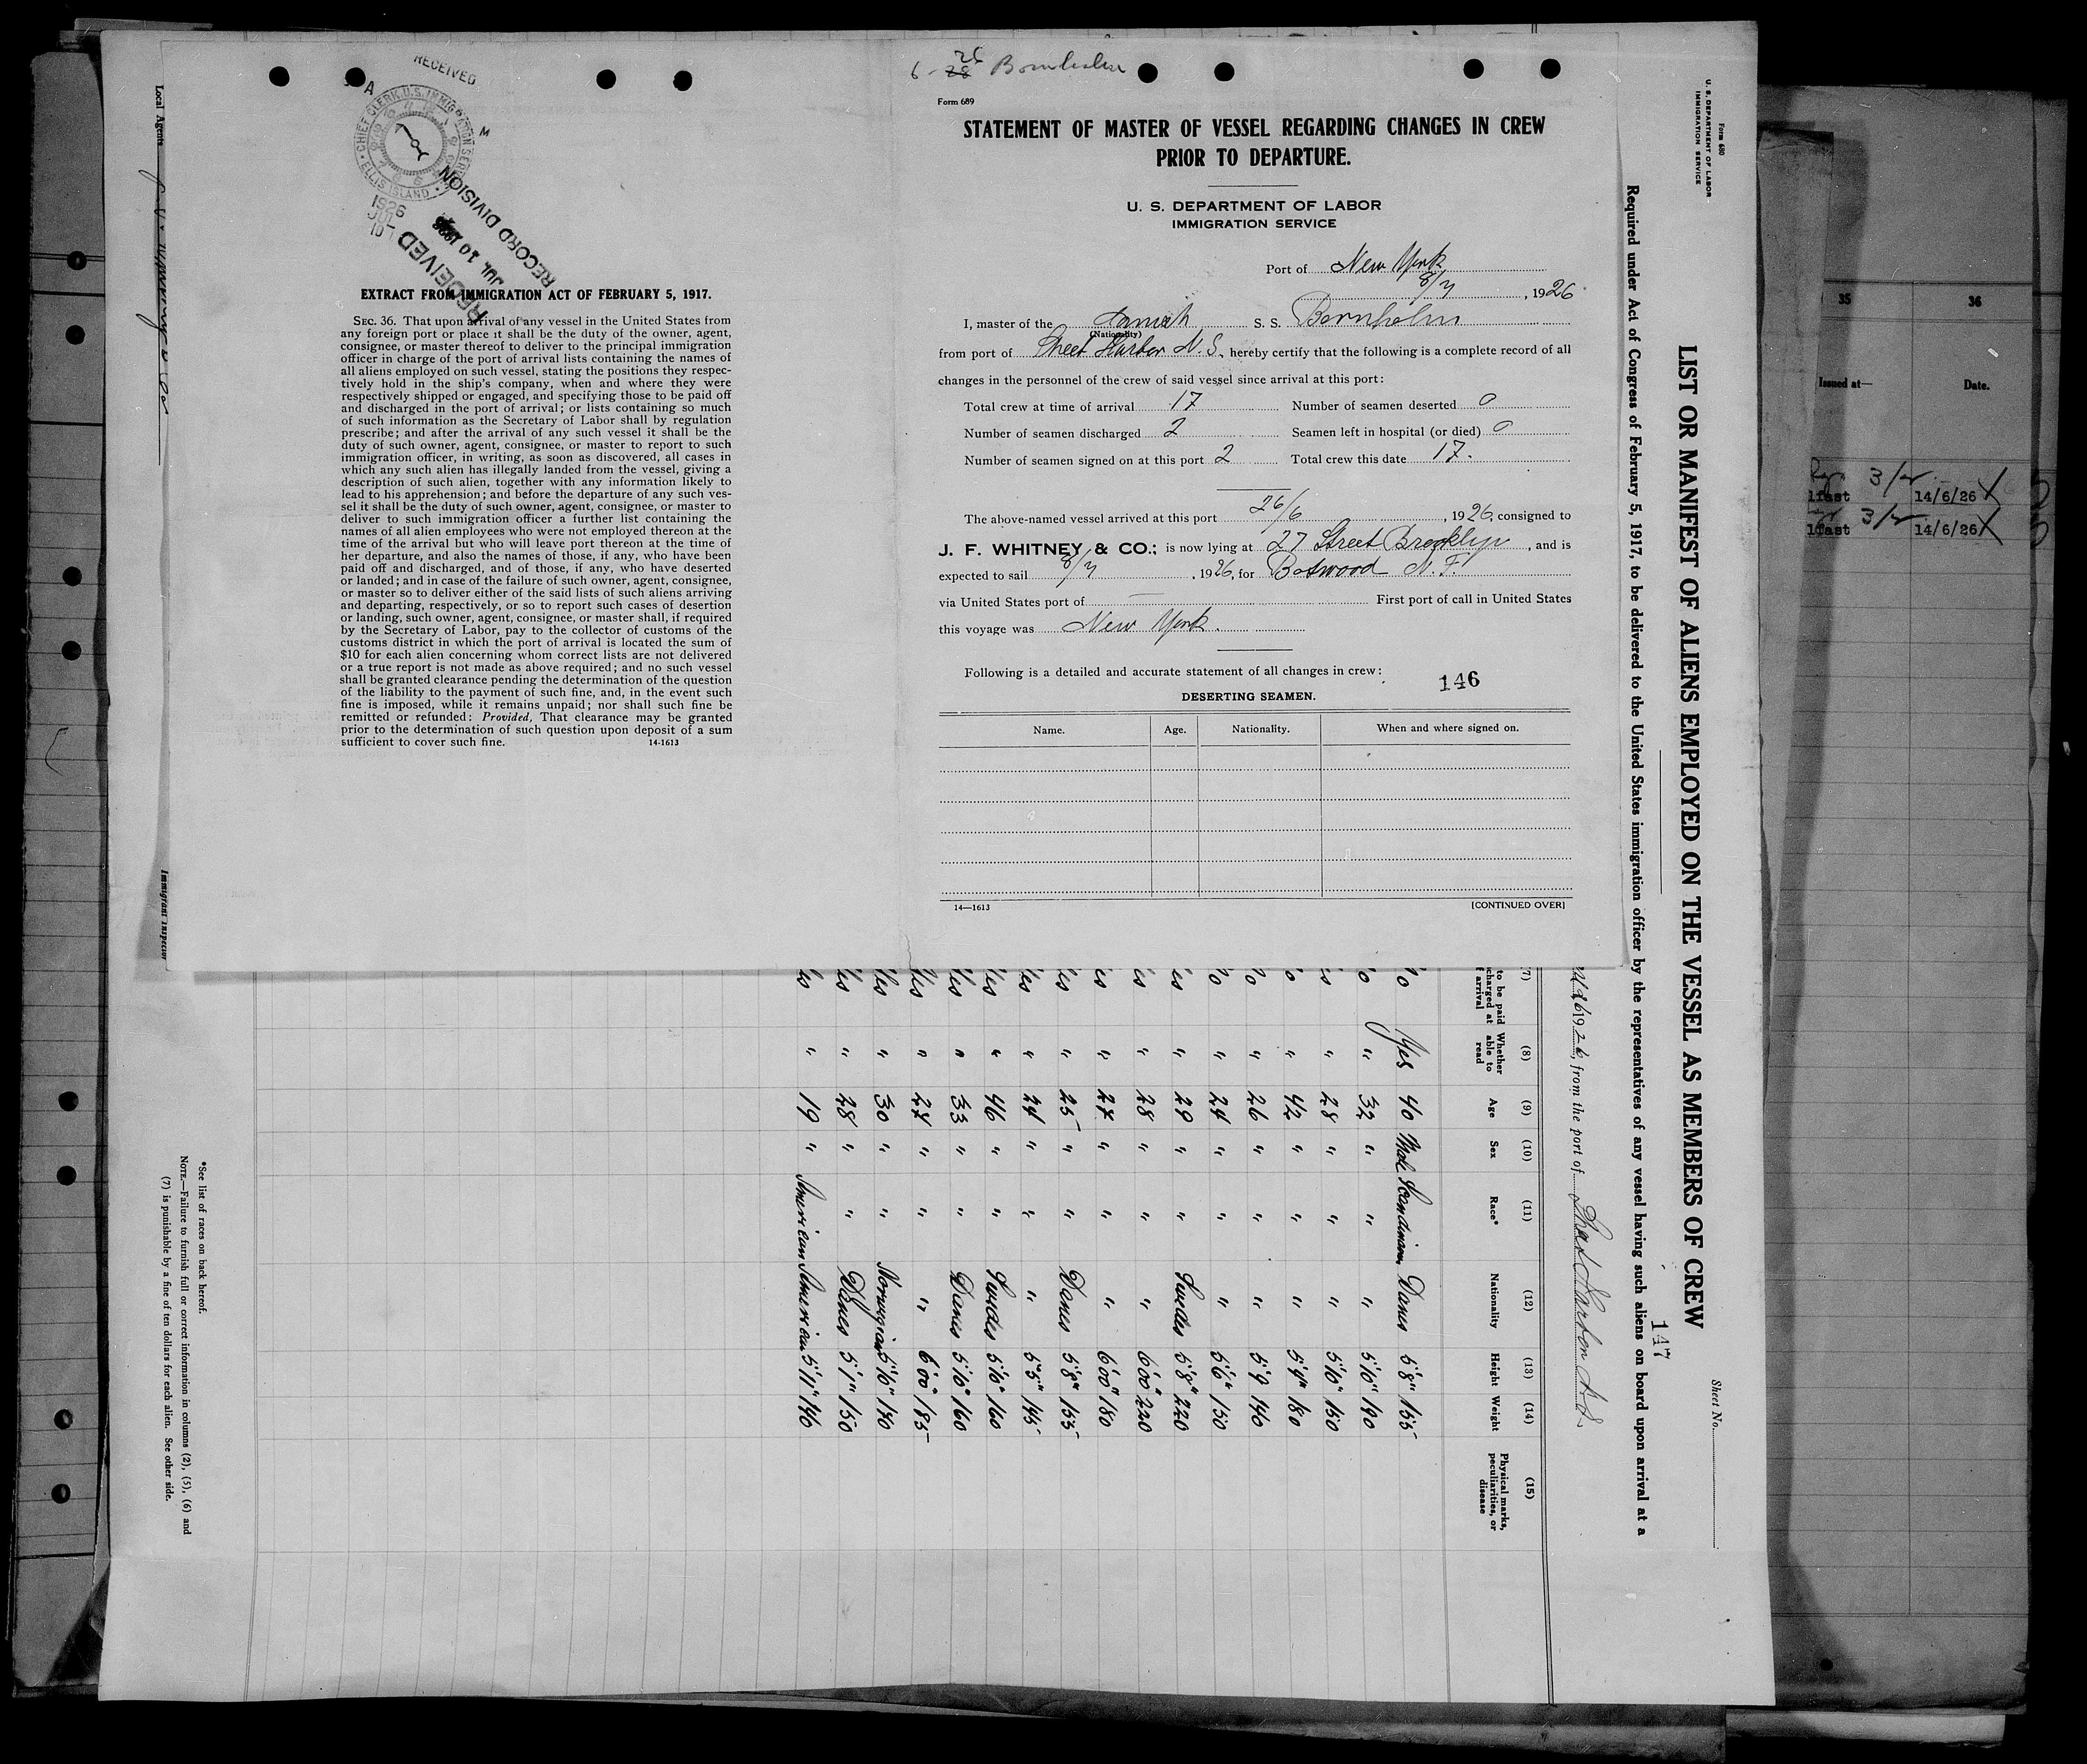 6-28 26 Bornholm
Form 689
STATEMENT OF MASTER OF VESSEL REGARDING CHANGES IN CREW
PRIOR TO DEPARTURE.
U. S. DEPARTMENT OF LABOR
IMMIGRATION SERVICE
Port of New York
8/7, 1926
I, master of the Danish S. S. Bornholm
(Nationality)
from port of Sheet Harbor N.S., hereby certify that the following is a complete record of all
changes in the personnel of the crew of said vessel since arrival at this port:
Total crew at time of arrival 17 Number of seamen deserted 0
Number of seamen discharged 2 Seamen left in hospital (or died) 0
Number of seamen signed on at this port 2 Total crew this date 17.
The above-named vessel arrived at this port 26/6, 1926, consigned to
J. F. WHITNEY & CO.; is now lying at 27 Street Brooklyn, and is
expected to sail 8/7, 1926, for Botwood N.F.
via United States port of — First port of call in United States
this voyage was New York.
Following is a detailed and accurate statement of all changes in crew:
146
DESERTING SEAMEN.
Name. Age. Nationality. When and where signed on.
14—1613 [CONTINUED OVER]
RECEIVED
A M
CHIEF CLERK U.S. IMMIGRATION SERV.
ELLIS ISLAND
1926
JUL
10
RECEIVED
JUL 10 1926
RECORD DIVISION
EXTRACT FROM IMMIGRATION ACT OF FEBRUARY 5, 1917.
SEC. 36. That upon arrival of any vessel in the United States from
any foreign port or place it shall be the duty of the owner, agent,
consignee, or master thereof to deliver to the principal immigration
officer in charge of the port of arrival lists containing the names of
all aliens employed on such vessel, stating the positions they respec-
tively hold in the ship's company, when and where they were
respectively shipped or engaged, and specifying those to be paid off
and discharged in the port of arrival; or lists containing so much
of such information as the Secretary of Labor shall by regulation
prescribe; and after the arrival of any such vessel it shall be the
duty of such owner, agent, consignee, or master to report to such
immigration officer, in writing, as soon as discovered, all cases in
which any such alien has illegally landed from the vessel, giving a
description of such alien, together with any information likely to
lead to his apprehension; and before the departure of any such ves-
sel it shall be the duty of such owner, agent, consignee, or master to
deliver to such immigration officer a further list containing the
names of all alien employees who were not employed thereon at the
time of the arrival but who will leave port thereon at the time of
her departure, and also the names of those, if any, who have been
paid off and discharged, and of those, if any, who have deserted
or landed; and in case of the failure of such owner, agent, consignee,
or master so to deliver either of the said lists of such aliens arriving
and departing, respectively, or so to report such cases of desertion
or landing, such owner, agent, consignee, or master shall, if required
by the Secretary of Labor, pay to the collector of customs of the
customs district in which the port of arrival is located the sum of
$10 for each alien concerning whom correct lists are not delivered
or a true report is not made as above required; and no such vessel
shall be granted clearance pending the determination of the question
of the liability to the payment of such fine, and, in the event such
fine is imposed, while it remains unpaid; nor shall such fine be
remitted or refunded: Provided, That clearance may be granted
prior to the determination of such question upon deposit of a sum
sufficient to cover such fine. 14-1613
Form 680
U. S. DEPARTMENT OF LABOR
IMMIGRATION SERVICE
Sheet No.
LIST OR MANIFEST OF ALIENS EMPLOYED ON THE VESSEL AS MEMBERS OF CREW
147
Required under Act of Congress of February 5, 1917, to be delivered to the United States immigration officer by the representatives of any vessel having such aliens on board upon arrival at a
26 1926, from the port of Sheet Harbor N.S.
(7) (8) (9) (10) (11) (12) (13) (14) (15)
to be paid
charged at
f arrival
Whether able to read Age Sex Race* Nationality Height Weight Physical marks, peculiarities, or disease
o Yes 40 Male Scandinavn Danes 5'8" 155
o " 32 " " " 5'10" 190
s " 28 " " " 5'10" 150
o " 42 " " " 5'4" 180
o " 26 " " " 5'9 140
o " 24 " " " 5'6" 150
es " 29 " " Swedes 5'8" 220
s " 28 " " " 6'00" 220
es " 27 " " " 6'00" 180
es " 25 " " Danes 5'8" 155
es " 24 " " " 5'5" 145
Yes " 46 " " Swedes 5'10" 160
Yes " 33 " " Danes 5'10" 160
Yes " 27 " " " 6'00" 185
Yes " 30 " " Norwegian 5'10" 170
es " 28 " " Danes 5'7" 150
es " 19 " American American 5'11" 140
*See list of races on back hereof.
NOTE.—Failure to furnish full or correct information in columns (2), (5), (6) and
(7) is punishable by a fine of ten dollars for each alien. See other side.
Local Agents
Immigrant Inspector
35 36
Issued at— Date.
3/
lfast 14/6/26 X
3/
lfast 14/6/26 X